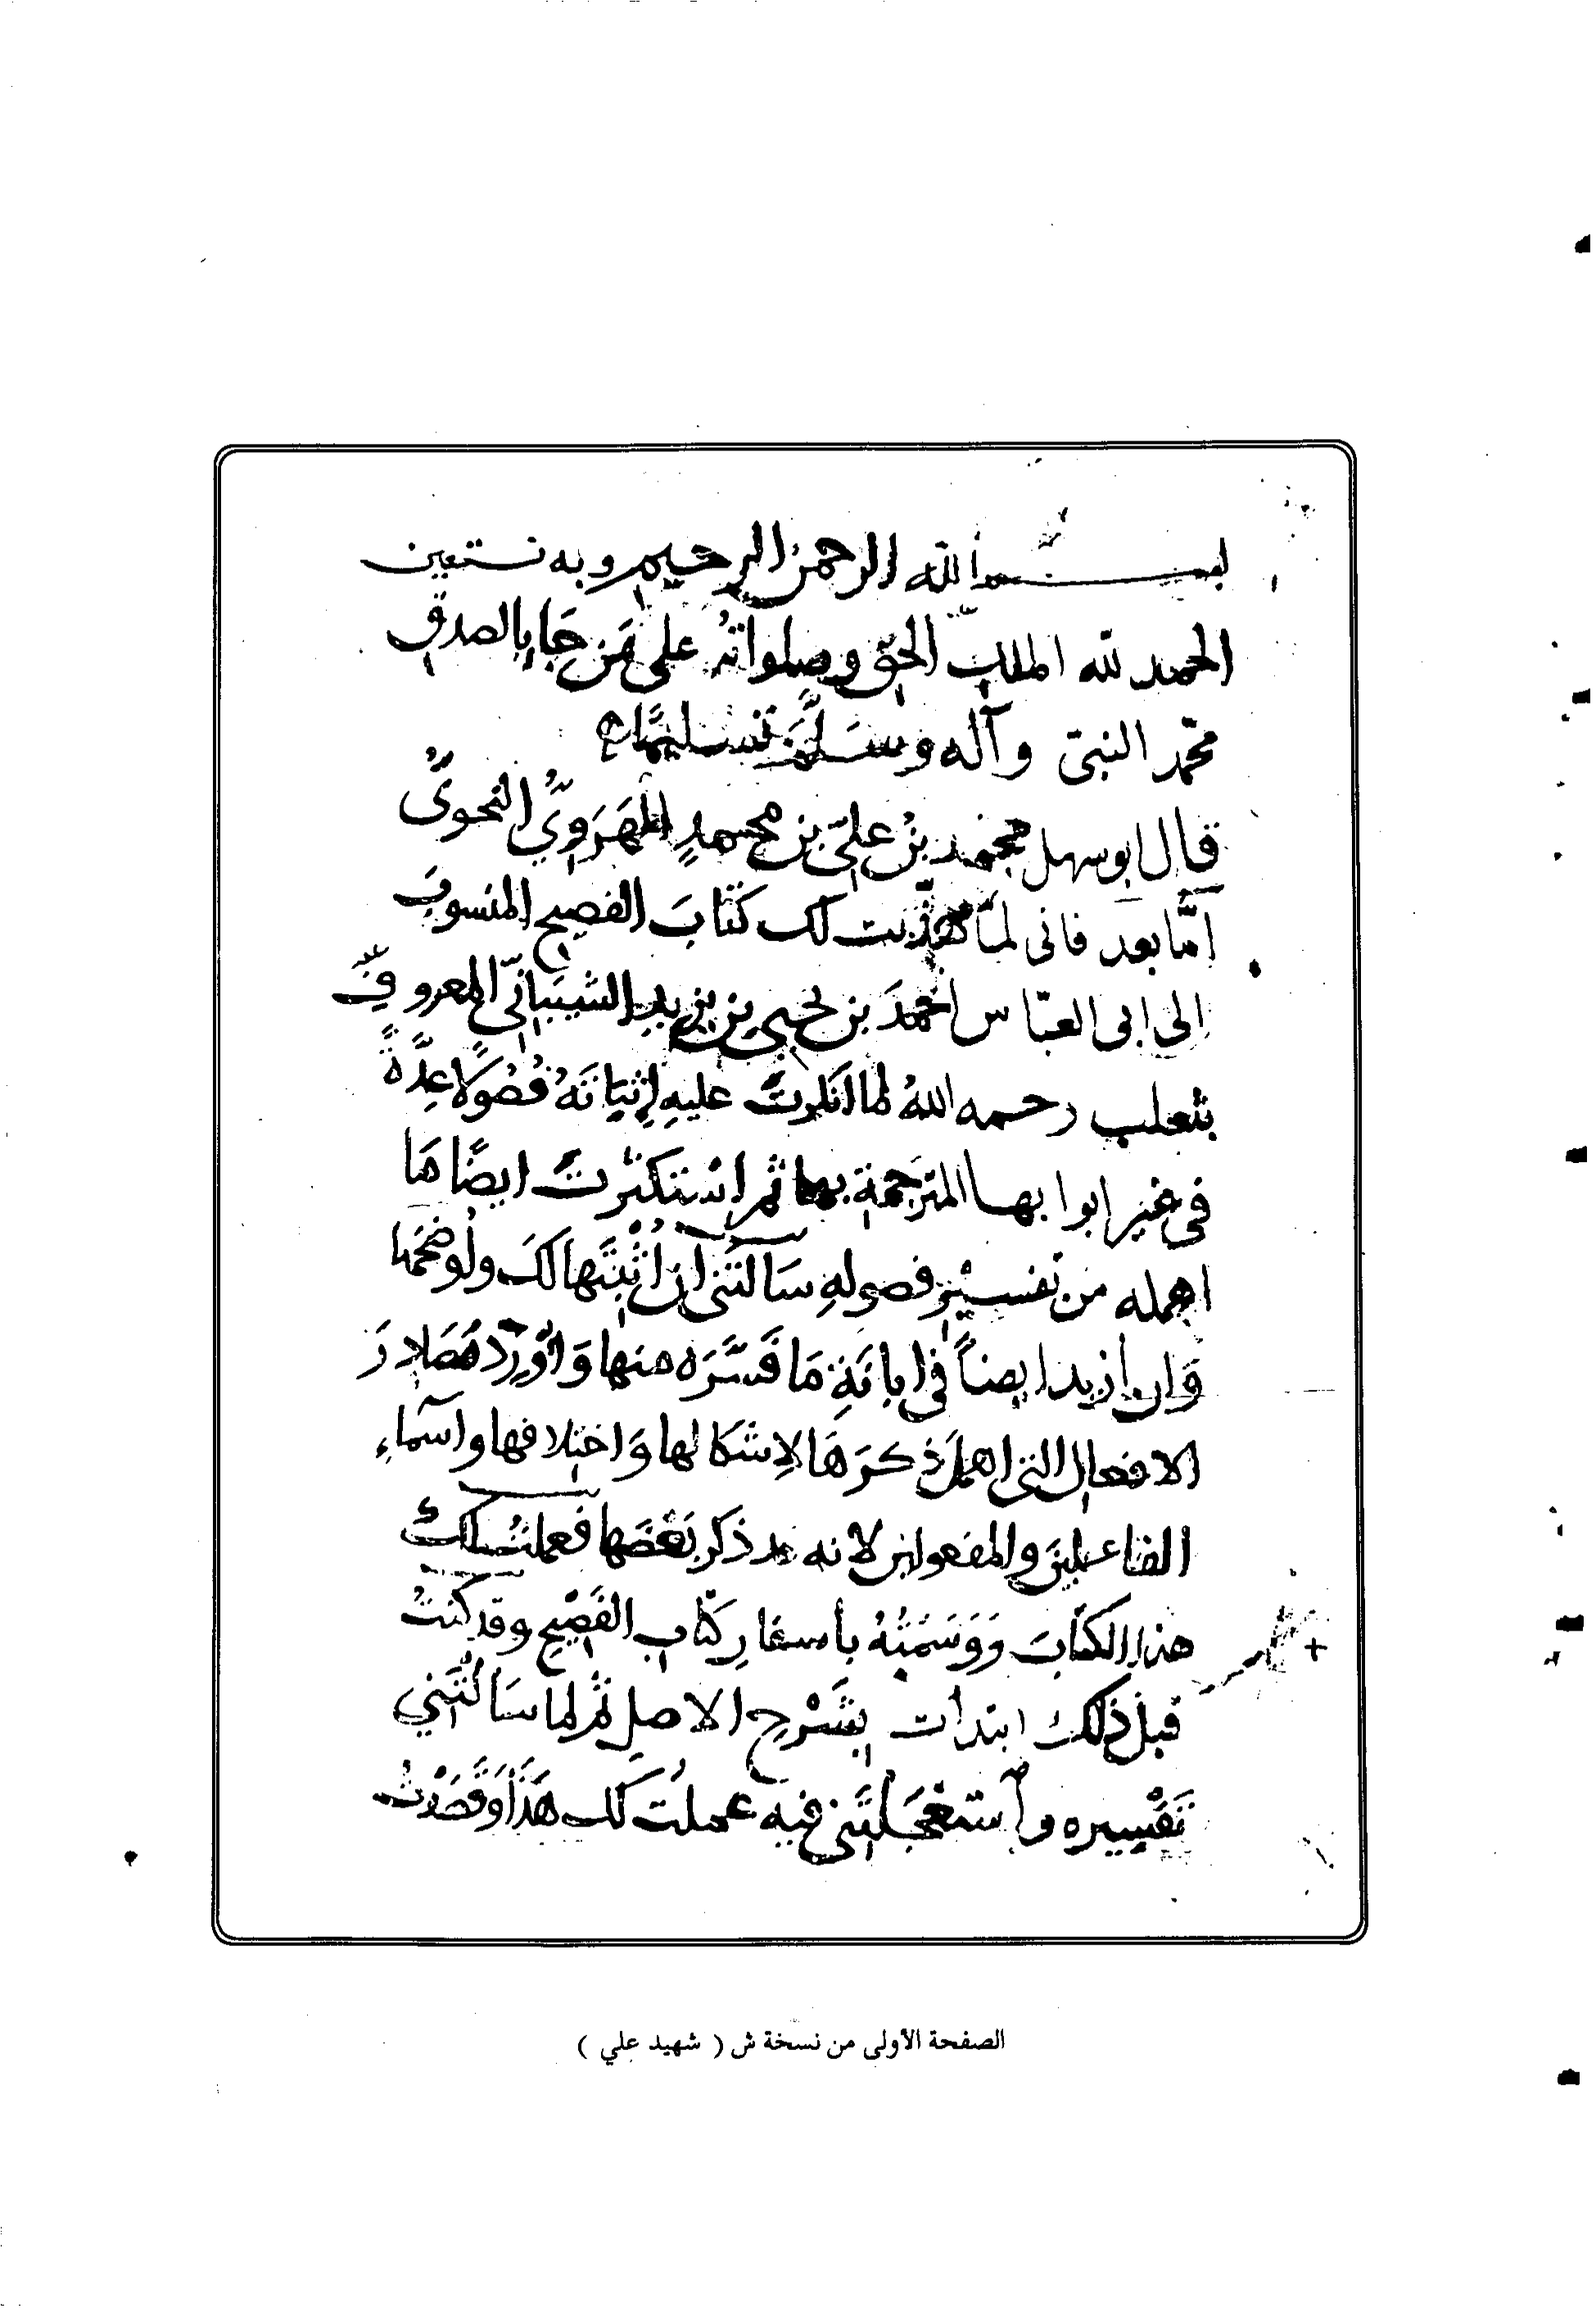 بسم الله الرحمن الرحيم وبه نستعين
الحمد لله الملك الحقّ وصلواتهُ على مَن جَا بِالصدق
محمّد النبيّ وآله وسَلَّمَ تَسليمًا
قال ابو سهل محمد بنُ عليّ بن محمدٍ الهَرَوِيُّ النحويُّ
أمّا بعد فانى لمّا هذّبت لك كتابَ الفصيح المنسوبَ
الى ابى العبّاس احمدَ بن يحيى بن زيد الشيبانيّ المعروف
بثعلب رحمه اللهُ لما انكرتَ عليهِ إِثباتَهُ فُصُولًا عِدَّةً
فى غير ابوابها المترجمة بها ثم استكثرتَ ايضًا مَا
اهمله من تفسيْرِ فصولهِ سَالتَنى ان أُثْبِتَها لكَ ولوضحَها
وَان ازيد ايضاً فى ابانَةِ مَا فَسَّرَه منها وَأُورِدَ مَصَادِرَ
الافعال التى اهمل ذكرَهَا لإشكالها وَاختلافها وأسمَاءِ
الفاعلينَ والمفعولين لانه قد ذكر بَعْضَها فعملتُ لك
هذا الكتابَ وَوَسَمْتُهُ بأسفارِ كتاب الفَصِيْحِ وقد كنتُ
قبلَ ذلك ابتدأت بشَرْحِ الاصلِ ثمَّ لما سَالْتَنِي
تَفْسِيره وآستعْجَلتَنى فيه عملتُ لك هَذَا وَقَصَدْتُ
الصفحة الأولى من نسخة ش ( شهيد علي )